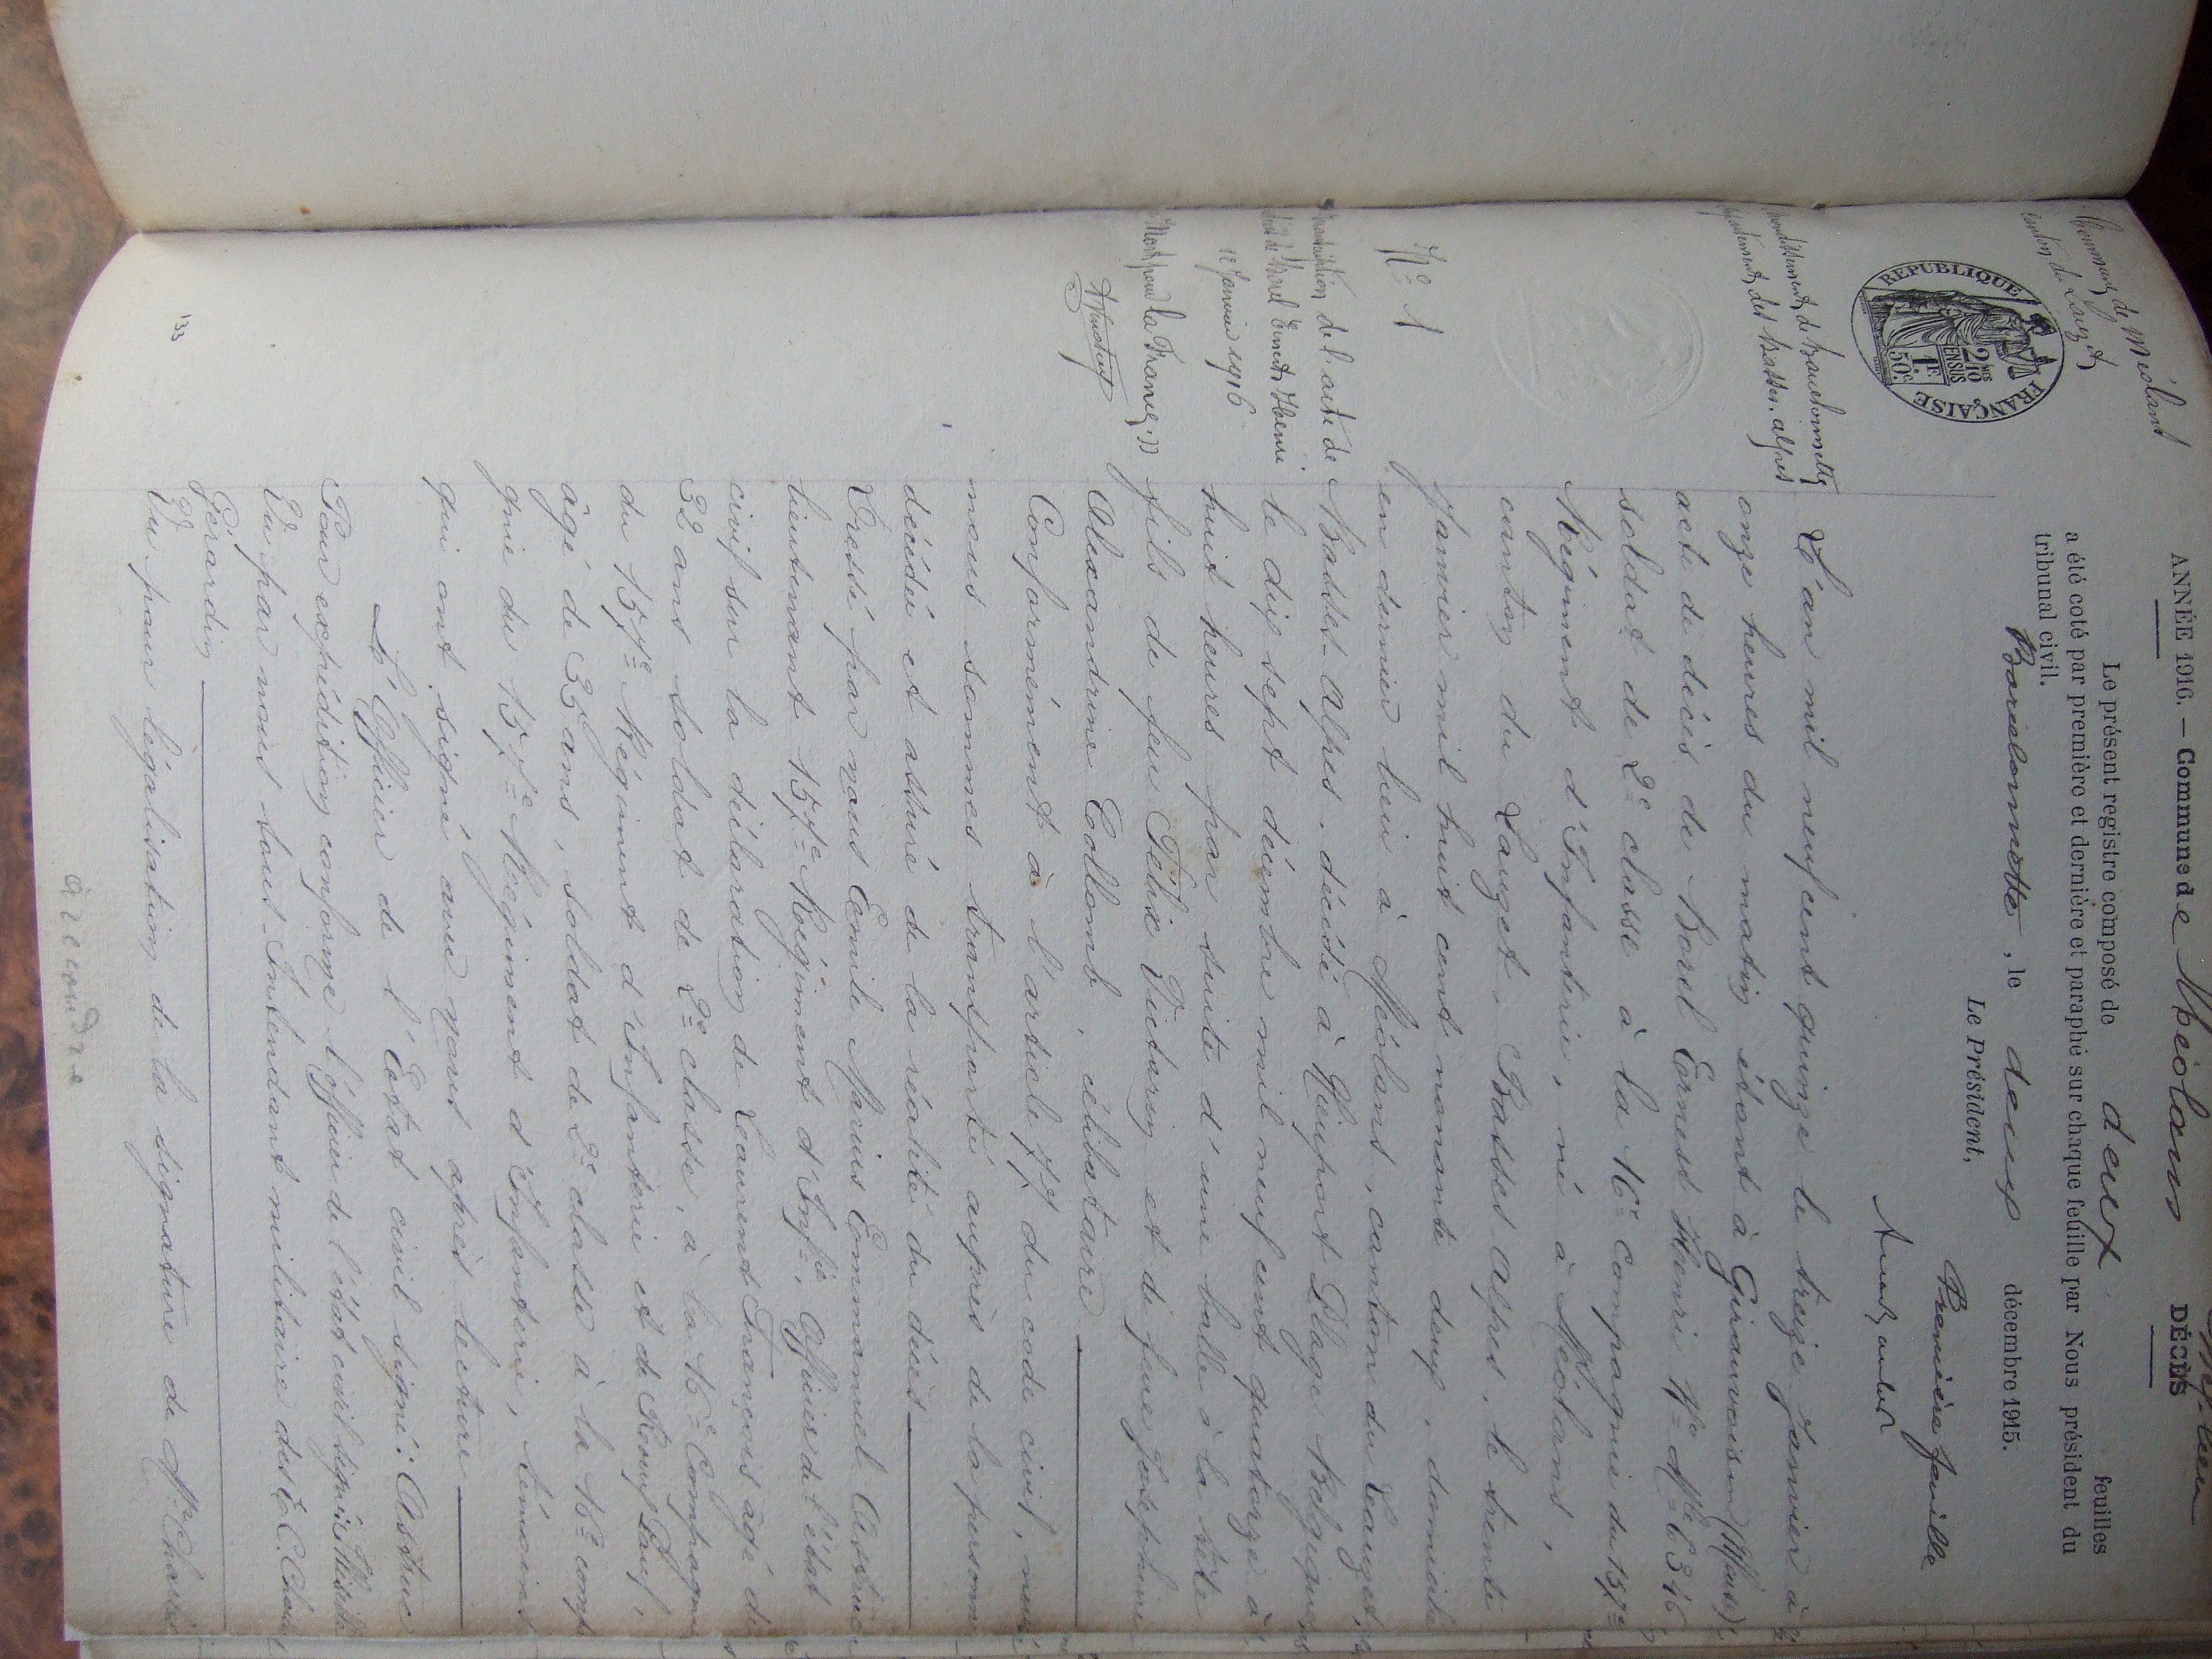 ANNÉE 1916. — Commune de Méolans DÉCÈS
Le présent registre composé de deux feuilles
a été coté par première et dernière et paraphé sur chaque feuille par Nous président du
tribunal civil.
Barcelonnette, le deux décembre 1915.
Le Président,
Première feuille
Commune de Méolans
canton de Lauzet
RÉPUBLIQUE FRANÇAISE
2/10 EN SUS
1F 50c
arrondissement de Barcelonnette
département des Basses-alpes
N° 1
Transcription de l'acte de
décès de Borel Ernest Henri
12 Janvier 1916
Mort pour la France
L'an mil neuf cent quinze le treize Janvier à
onze heures du matin étant à Girauvoisin (Meuse)
acte de décès de Borel Ernest Henri N° Mle 6346
soldat de 2e classe à la 16e Compagnie du 157e
Régiment d'Infanterie, né à Méolans,
canton du Lauzet, Basses Alpes, le trente
Janvier mil huit cent nonante deux, domicilié
en dernier lieu à Méolans, canton du Lauzet,
Basses-Alpes, décédé à Nieuport Plage Belgique
le dix sept décembre mil neuf cent quatorze à
huit heures par suite d'une balle à la tête
fils de feu Félix Victorin et de feue Joséphine
Alexandrine Collomb, célibataire
Conformément à l'article 77 du code civil, nous
nous sommes transporté auprès de la personne
décédée et assuré de la réalité du décès
Dressé par nous Emile Marius Emmanuel Astruc
lieutenant 157e Régiment d'Infie, Officier de l'état
civil sur la déclaration de Laurent François âgé de
32 ans soldat de 2e classe, à la 16e Compagnie
du 157e Régiment d'Infanterie et de Roux Paul,
âgé de 35 ans, soldat de 2e classe à la 16e compa
gnie du 157e Régiment d'Infanterie, témoins
qui ont signé avec nous après lecture
L'Officier de l'Etat civil signé: Astruc
Pour expédition conforme l'officier de l'état civil signé:
Vu par nous sous-Intendant militaire des E.C.
Gérardin
Vu pour légalisation de la signature de Mr Charles
133